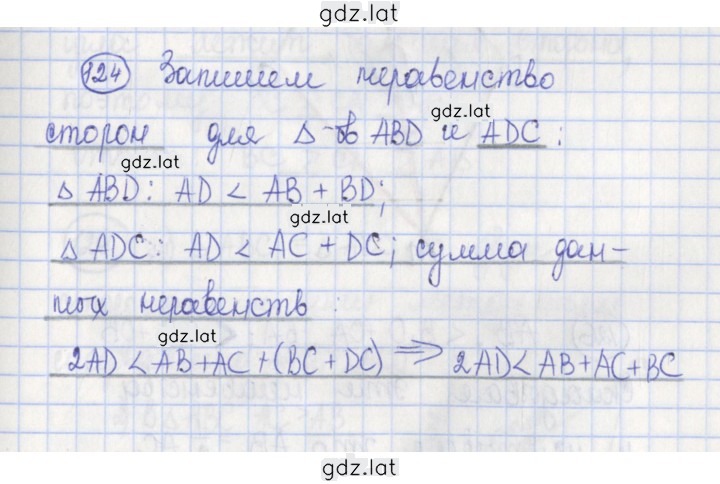 gdz.lat
124 Запишем неравенство
gdz.lat
сторон для Δ-ов ABD и ADC:
gdz.lat
Δ ABD: AD < AB + BD;
gdz.lat
Δ ADC: AD < AC + DC; сумма дан-
ных неравенств:
gdz.lat
2AD < AB+AC+(BC+DC) ⇒ 2AD < AB+AC+BC
gdz.lat